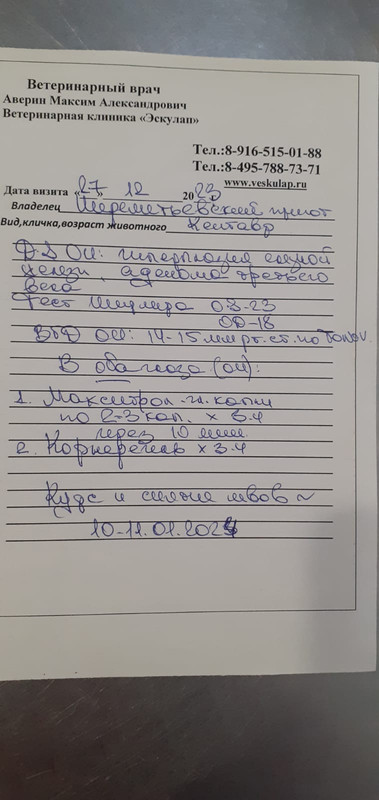 Ветеринарный врач
Аверин Максим Александрович
Ветеринарная клиника «Эскулап»
Тел.:8-916-515-01-88
Тел.:8-495-788-73-71
www.veskulap.ru
Дата визита «27» 12 2023 г
Владелец Шереметьевский приют
Вид,кличка,возраст животного Кентавр
D-S OU: гиперплазия слезной
железы, аденома третьего
века
Тест Ширмера OS-23
OD-18
ВГД OU: 14-15 мм рт.ст. по TonoV.
В оба глаза (OU):
1. Макситрол-гл. капли
по 2-3 кап. х 3.ч
через 10 мин.
2. Корнерегель х 3.ч
Курс и снятие швов ~
10-11.01.2024